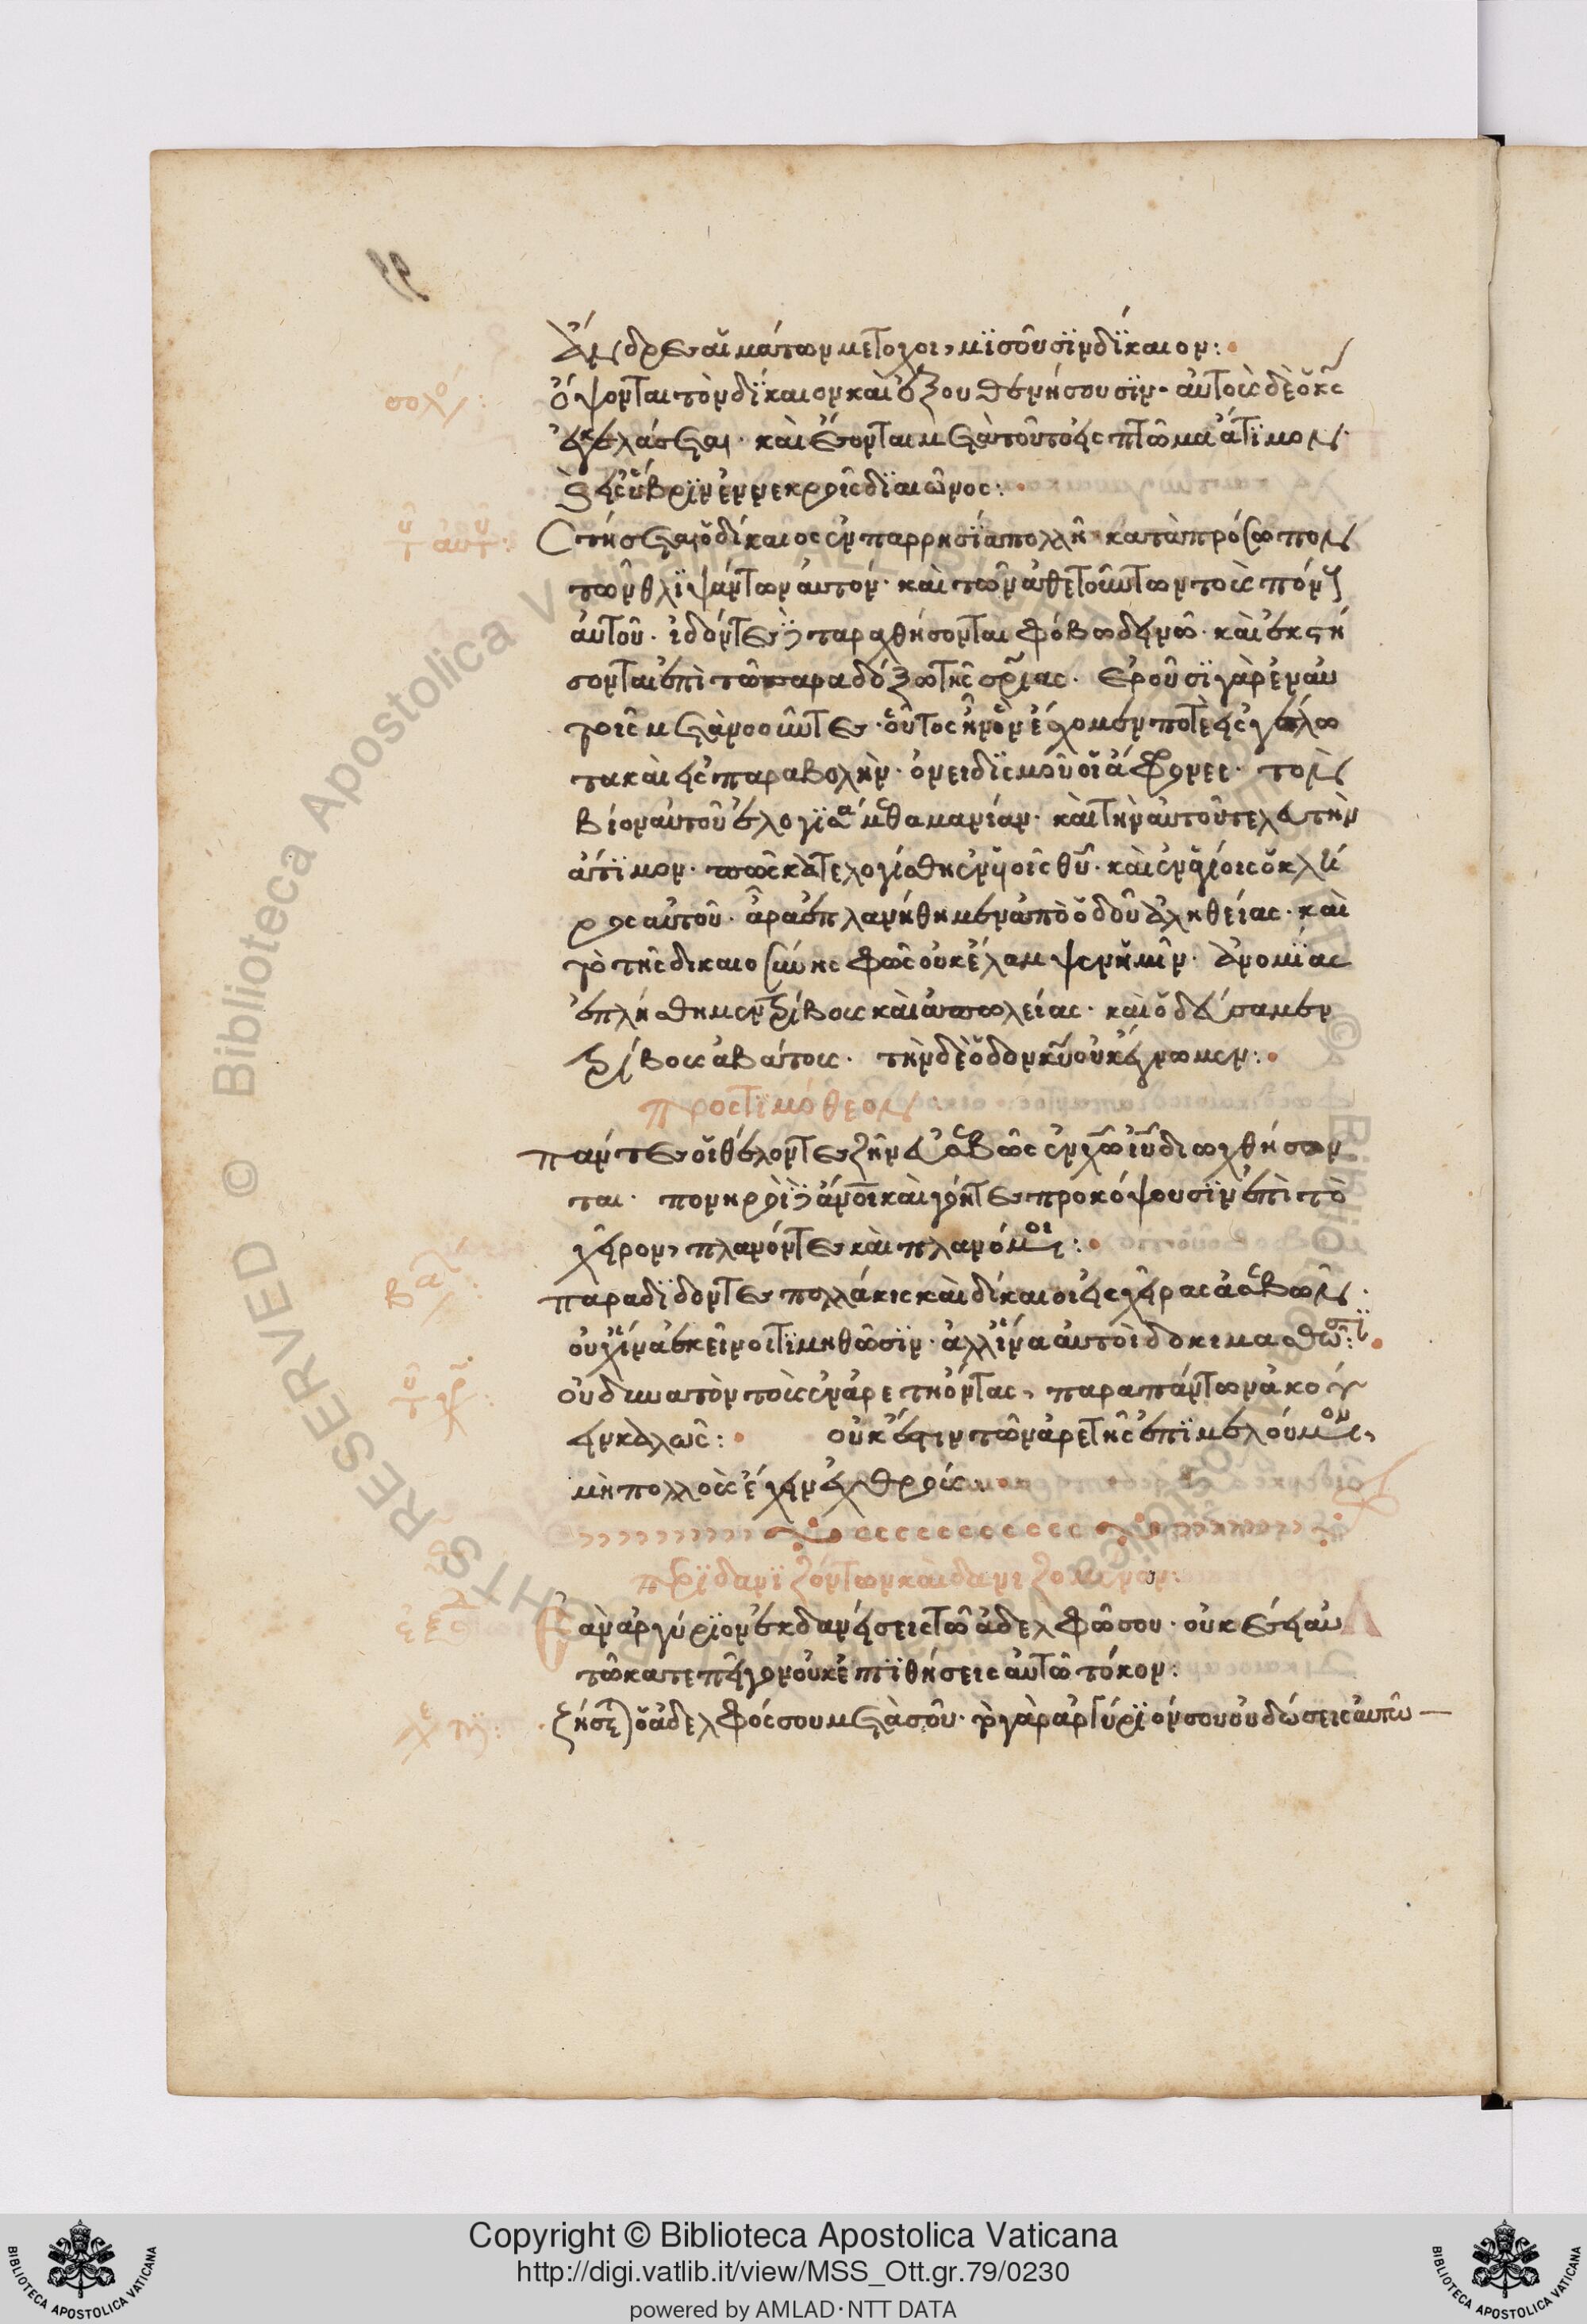 Ἄνδρες αἱμάτων μέτοχοι, μϊσοῦσϊν δΐκαιον:
σολο: ὄψονται τὸν δΐκαιον καὶ ἐξουθενήσουσϊν· αὐτοὺς δὲ ὁ κς
ἐκγελάσεται· καὶ ἔσονται μετὰ τοῦτο εἰς πτῶμα ἄτϊμον·
καὶ εἰς ὕβρϊν ἐν νεκροῖς δϊ αἰῶνος:
τοῦ αὐτοῦ: Στήσεται ὁ δίκαιος ἐν παρρησΐα πολλῆ κατὰ πρόσωπον
τῶν θλϊψάντων αὐτόν· καὶ τῶν ἀθετούντων τοὺς πόν
αὐτοῦ· ἰδόντες ταραχθήσονται φόβω δεινῶ· καὶ ἐκστή
σονται ἐπὶ τῶ παραδόξω τῆς σριας· Ἐροῦσϊ γὰρ ἐν αυ
τοῖς μετανοοῦντες· οὗτος ἦν ὃν ἔχομέν ποτε εἰς γέλω
τα καὶ εἰς παραβολὴν· ὀνειδϊσμοῦ οἱ ἄφρονες· τὸν
βίον αὐτοῦ ἐλογϊσάμεθα μανίαν· καὶ τὴν αὐτοῦ τελευτὴν
ἄτϊμον· πῶς κατελογίσθη ἐν υἱοῖς θυ· καὶ ἐν ἁγίοις ὁ κλῆ
ρος αὐτοῦ· ἆρα ἐπλανήθημεν ἀπὸ ὁδοῦ ἀληθείας· καὶ
τὸ τῆς δικαιοσύνης φῶς οὐκ ἔλαμψεν ἡμῖν· Ἀνομΐας
ἐπλήσθημεν τρίβοις καὶ ἀπωλείας· καὶ ὁδεύσαμεν
τρίβους ἀβάτους· τὴν δὲ ὁδὸν κυ οὐκ ἔγνωμεν:
πρὸς Τϊμόθεον
πάντες οἱ θέλοντες ζῆν εὐσεβῶς ἐν χω ιυ διωχθήσον
ται· πονηροὶ ἄνοι καὶ γόητες προκόψουσϊν ἐπὶ τὸ
χεῖρον, πλανόντες καὶ πλανόμενοι:
βασ: παραδΐδονται πολλάκις καὶ δίκαιοι εἰς χεῖρας ἀσεβῶν·
οὐχ ἵνα ἐκεῖνοι τϊμηθῶσϊν· ἀλλ ἵνα αὐτοὶ δοκιμασθῶσϊ:
τοῦ χρ: οὐ δυνατὸν τοὺς ἐν ἀρετῆ ὄντας, παρὰ πάντων ἀκού
ειν καλῶς: οὐκ ἔστιν τῶν ἀρετῆς ἐπϊμελούμενον,
μὴ πολλοὺς ἔχειν ἐχθρούς
περϊ δανϊζόντων καὶ δανιζομένων:
ἐξοδ: Ἐὰν ἀργύρϊον ἐκδανείσεις τῶ ἀδελφῶ σου· οὐκ ἔσει αὐ
τῶ κατεπείγον οὐκ ἐπϊθήσεις αὐτῶ τόκον:
ζήσεται ὁ ἀδελφός σου μετὰ σοῦ· τὸ γὰρ ἀργύρϊόν σου οὐ δώσεις αὐτῶ
Copyright © Biblioteca Apostolica Vaticana
http://digi.vatlib.it/view/MSS_Ott.gr.79/0230
powered by AMLAD·NTT DATA